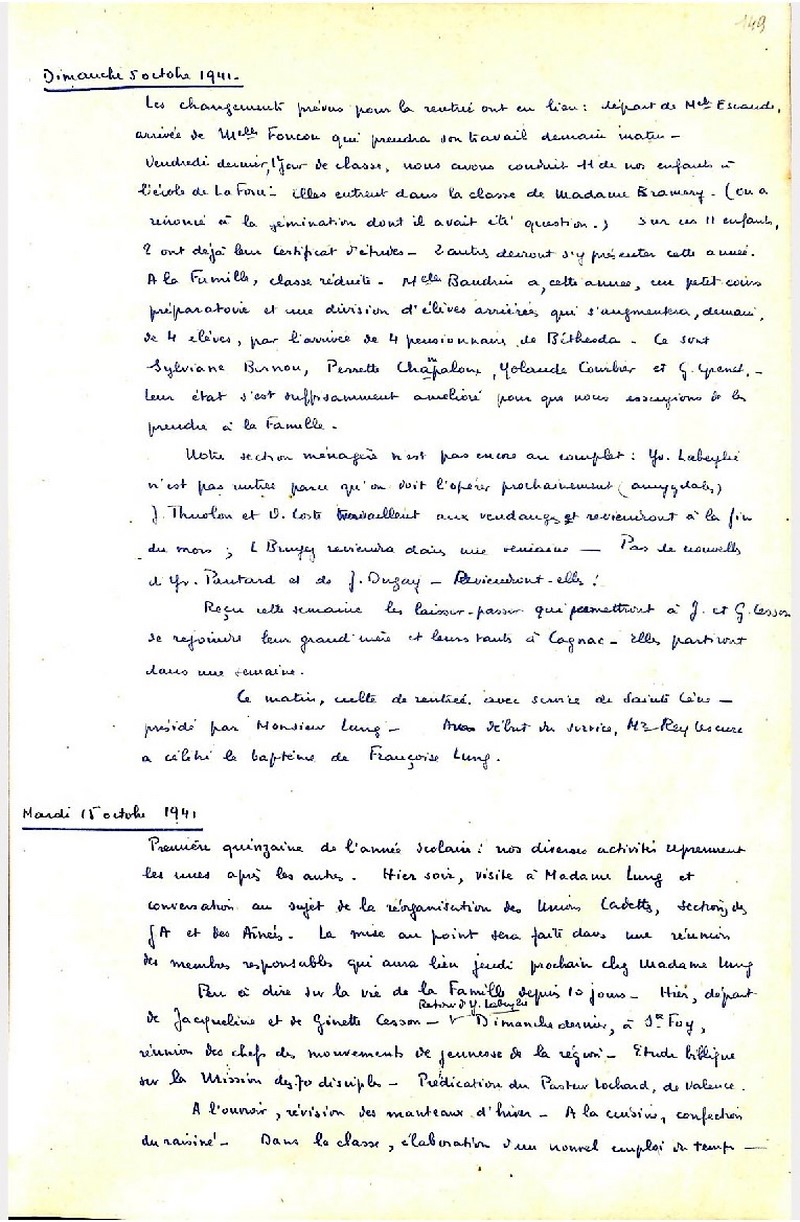 149
Dimanche 5 octobre 1941.
Les changements prévus pour la rentrée ont eu lieu : départ de Melle Escande,
arrivée de Melle Foucou qui prendra son travail demain matin -
Vendredi dernier, 1er jour de classe, nous avons conduit 11 de nos enfants à
l'école de La Force - Elles entrent dans la classe de Madame Bramery. (On a
renoncé à la gémination dont il avait été question.) Sur ces 11 enfants,
2 ont déjà leur Certificat d'études - 2 autres devront s'y présenter cette année.
A la Famille, classe réduite. Melle Baudrin a, cette année, un petit cours
préparatoire et une division d'élèves arriérées qui s'augmentera, demain,
de 4 élèves, par l'arrivée de 4 pensionnaires de Béthesda - Ce sont
Sylviane Pierrette Chapaloux, Yolande Courbier et G. -
leur état s'est suffisamment amélioré pour que nous essayions de les
prendre à la Famille.
Notre section ménagère n'est pas encore au complet : Yv. Labeylie
n'est pas rentrée parce qu'on doit l'opérer prochainement (amygdales)
J. et D. Coste travaillent aux vendanges et reviendront à la fin
du mois ; reviendra dans une semaine - Pas de nouvelles
d'Yv. Pautard et de J. Dugay - Reviendront-elles ?
Reçu cette semaine les laisser-passer qui permettront à J. et G. Cesson
de rejoindre leur grand'mère et leurs tantes à Cognac - Elles partiront
dans une semaine.
Ce matin, culte de rentrée avec service de Sainte Cène -
présidé par Monsieur Lung - Au début du service, Mr Rey Lescure
a célébré le baptême de Françoise Lung.
Mardi 15 octobre 1941
Première quinzaine de l'année scolaire : nos diverses activités reprennent
les unes après les autres. Hier soir, visite à Madame Lung et
conversation au sujet de la réorganisation des Unions Cadettes, sections des
JA et des Aînées. La mise au point sera faite dans une réunion
des membres responsables qui aura lieu jeudi prochain chez Madame Lung
Peu à dire sur la vie de la Famille depuis 10 jours - Hier, départ
Retour d'Y. Labeylie
de Jacqueline et de Ginette Cesson - Dimanche dernier, à Ste Foy,
réunion des chefs des mouvements de jeunesse de la région - Etude biblique
sur la Mission des 70 disciples - Prédication du Pasteur Lochard, de Valence.
A l'ouvroir, révision des manteaux d'hiver - A la cuisine, confection
du raisiné - Dans la classe, élaboration d'un nouvel emploi du temps -